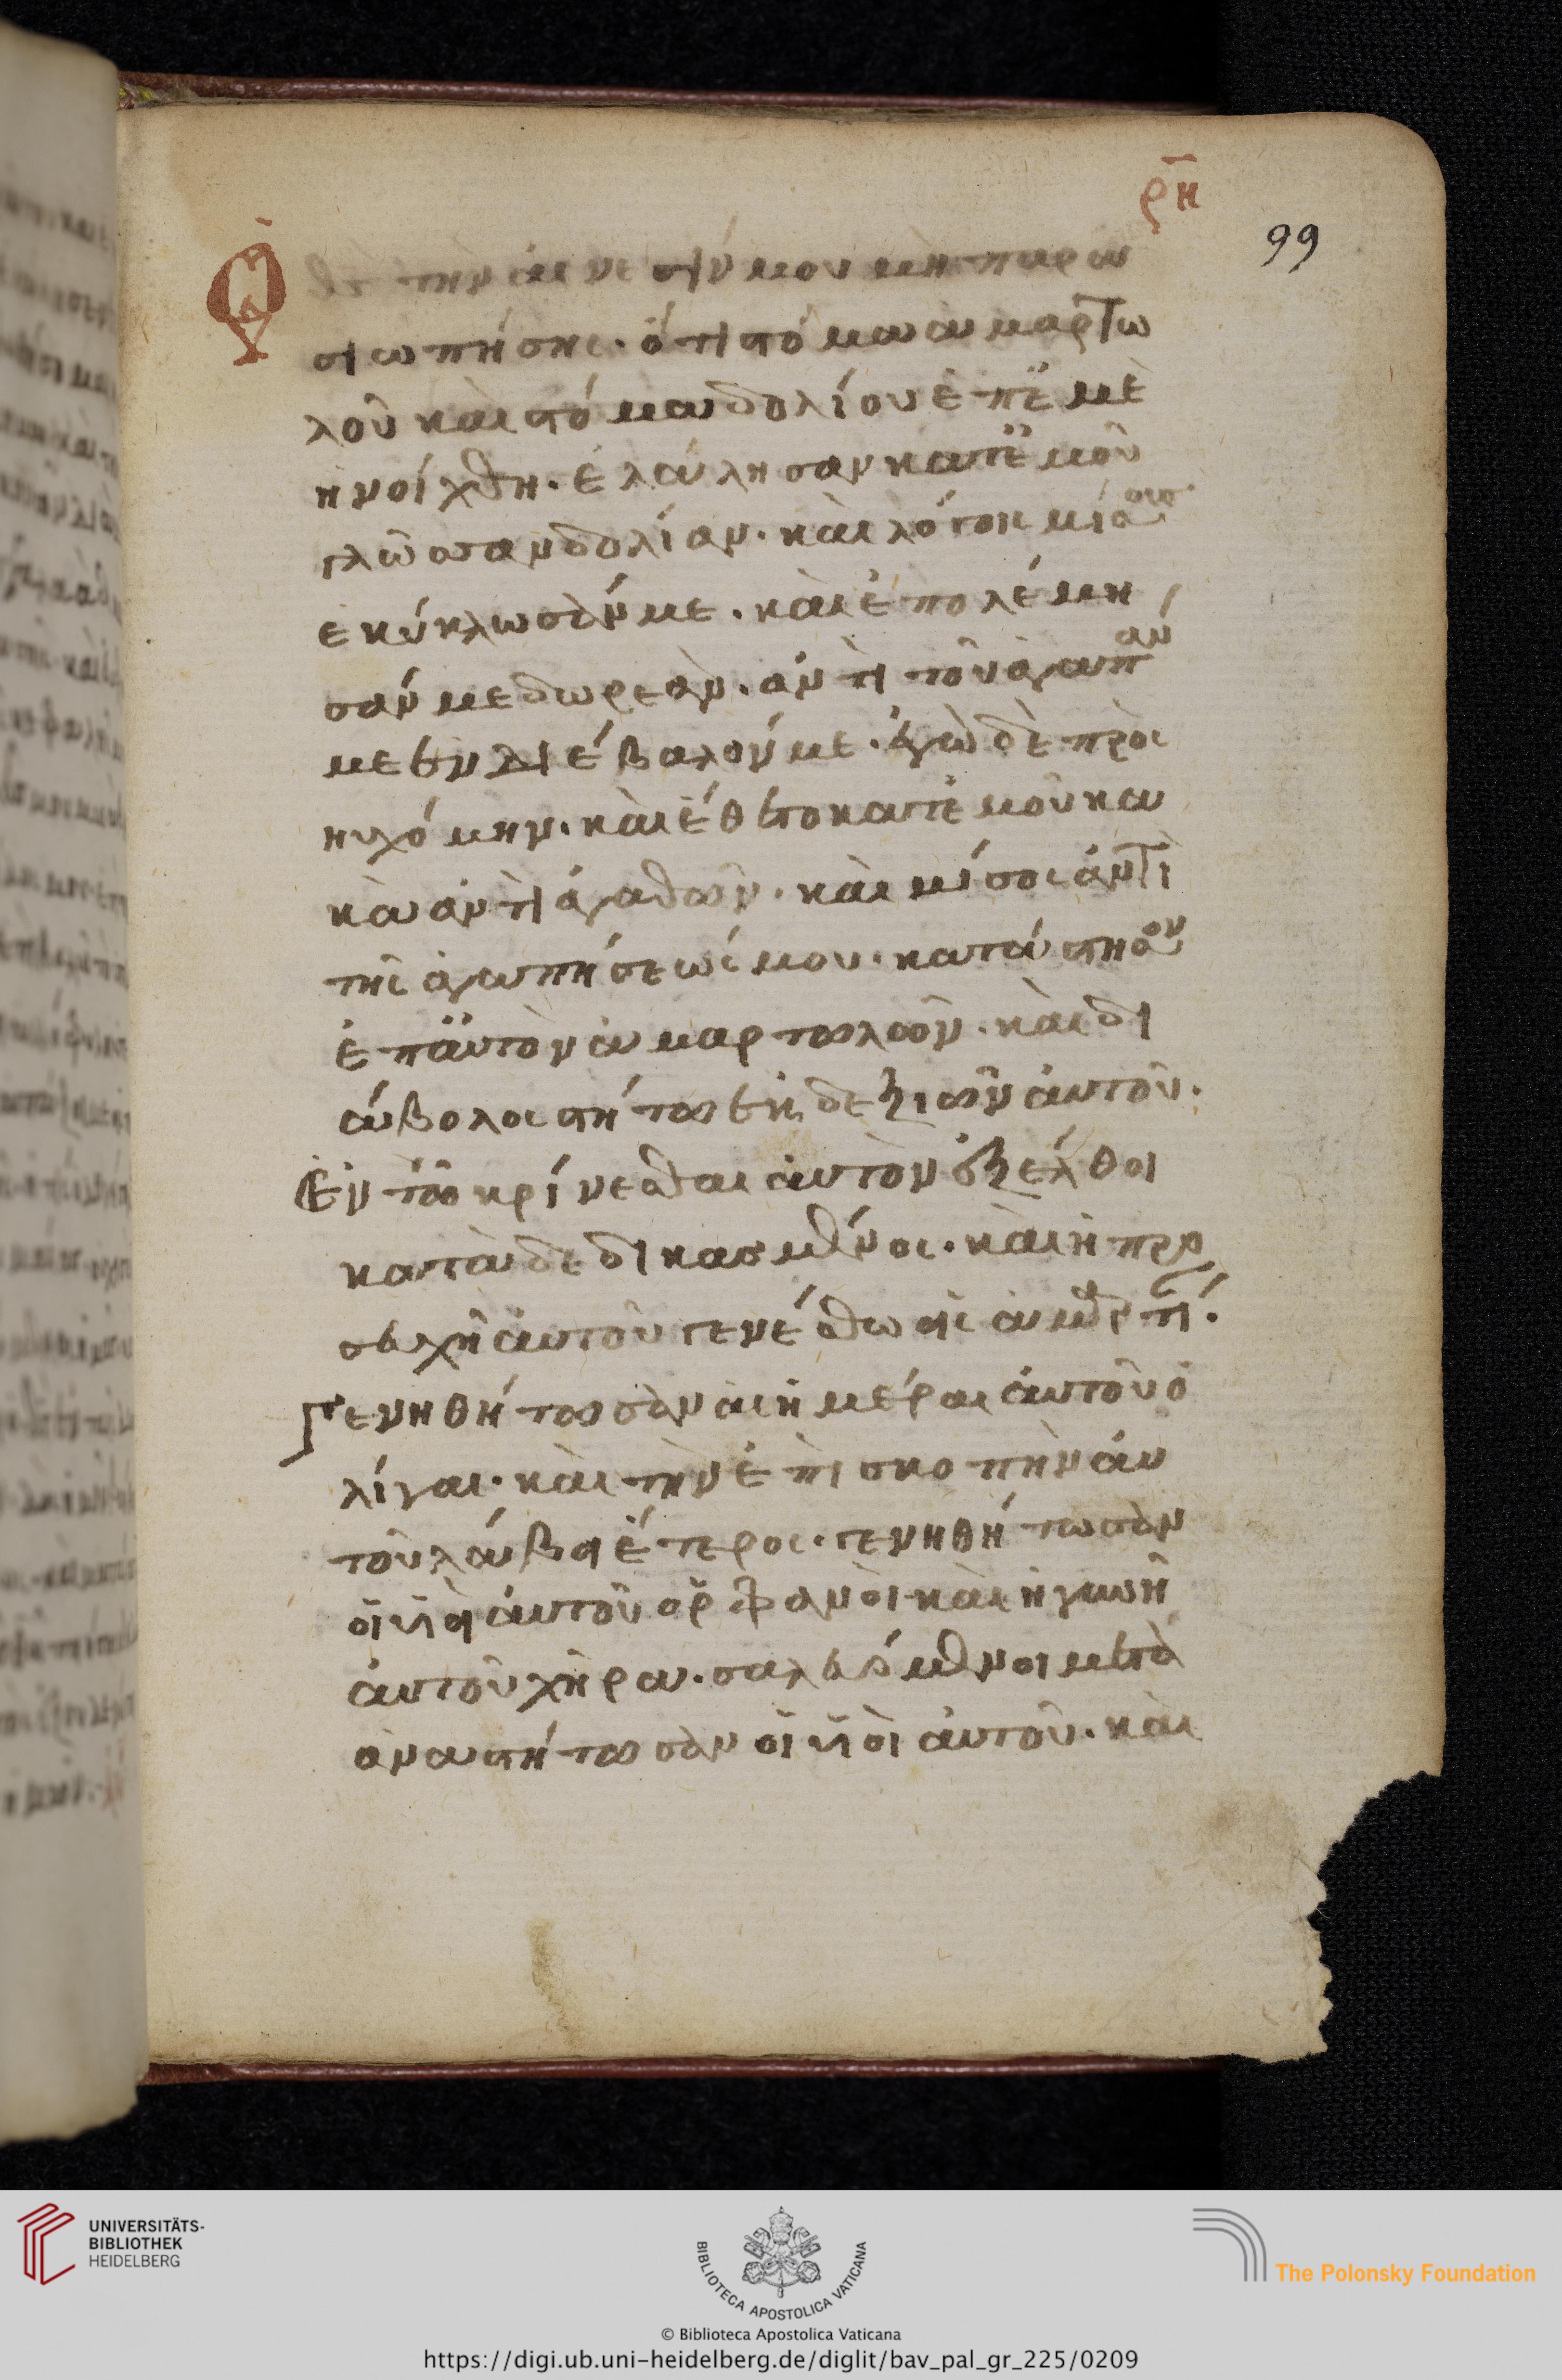 ρη
99
Ὁ θς την αἴνεσίν μου μη παρα
σιωπήσης· ὅτι στόμα ἁμαρτω
λοῦ καὶ στόμα δολίου ἐπ ἐμὲ
ἠνοίχθη· ἐλάλησαν κατ ἐμοῦ
γλῶσσαν δολίαν· καὶ λόγοις μίσους
ἐκύκλωσάν με· καὶ ἐπολέμη
σάν με δωρεὰν· ἀντὶ τοῦ ἀγαπᾶν
με ενδιέβαλόν με· ἐγὼ δὲ προσ
ηυχόμην· καὶ ἔθεντο κατ ἐμοῦ κα
κὰ ἀντὶ ἀγαθῶν· καὶ μίσος ἀντὶ
τῆς ἀγαπήσεώς μου· κατάστησον
ἐπ αὐτὸν ἁμαρτωλὸν· καὶ δι
άβολος στήτω ἐκ δεξιῶν αὐτοῦ·
Ἐν τῶ κρίνεσθαι αὐτὸν ἐξέλθοι
καταδεδικασμένος· καὶ ἡ προ
σευχὴ αὐτοῦ γενέσθω εἰς ἁμαρτί·
Γενηθήτωσαν αἱ ἡμέραι αὐτοῦ ὀ
λίγαι· καὶ τὴν ἐπισκοπὴν αὐ
τοῦ λάβοι ἕτερος· γενηθήτωσαν
οἱ υἱοὶ αὐτοῦ ὀρφανοὶ καὶ ἡ γυνὴ
αὐτοῦ χήρα· σαλευόμενοι μετὰ
ἀναστήτωσαν οἱ υἱοὶ αὐτοῦ· καὶ
UNIVERSITÄTS-
BIBLIOTHEK
HEIDELBERG
BIBLIOTECA APOSTOLICA VATICANA
The Polonsky Foundation
© Biblioteca Apostolica Vaticana
https://digi.ub.uni-heidelberg.de/diglit/bav_pal_gr_225/0209